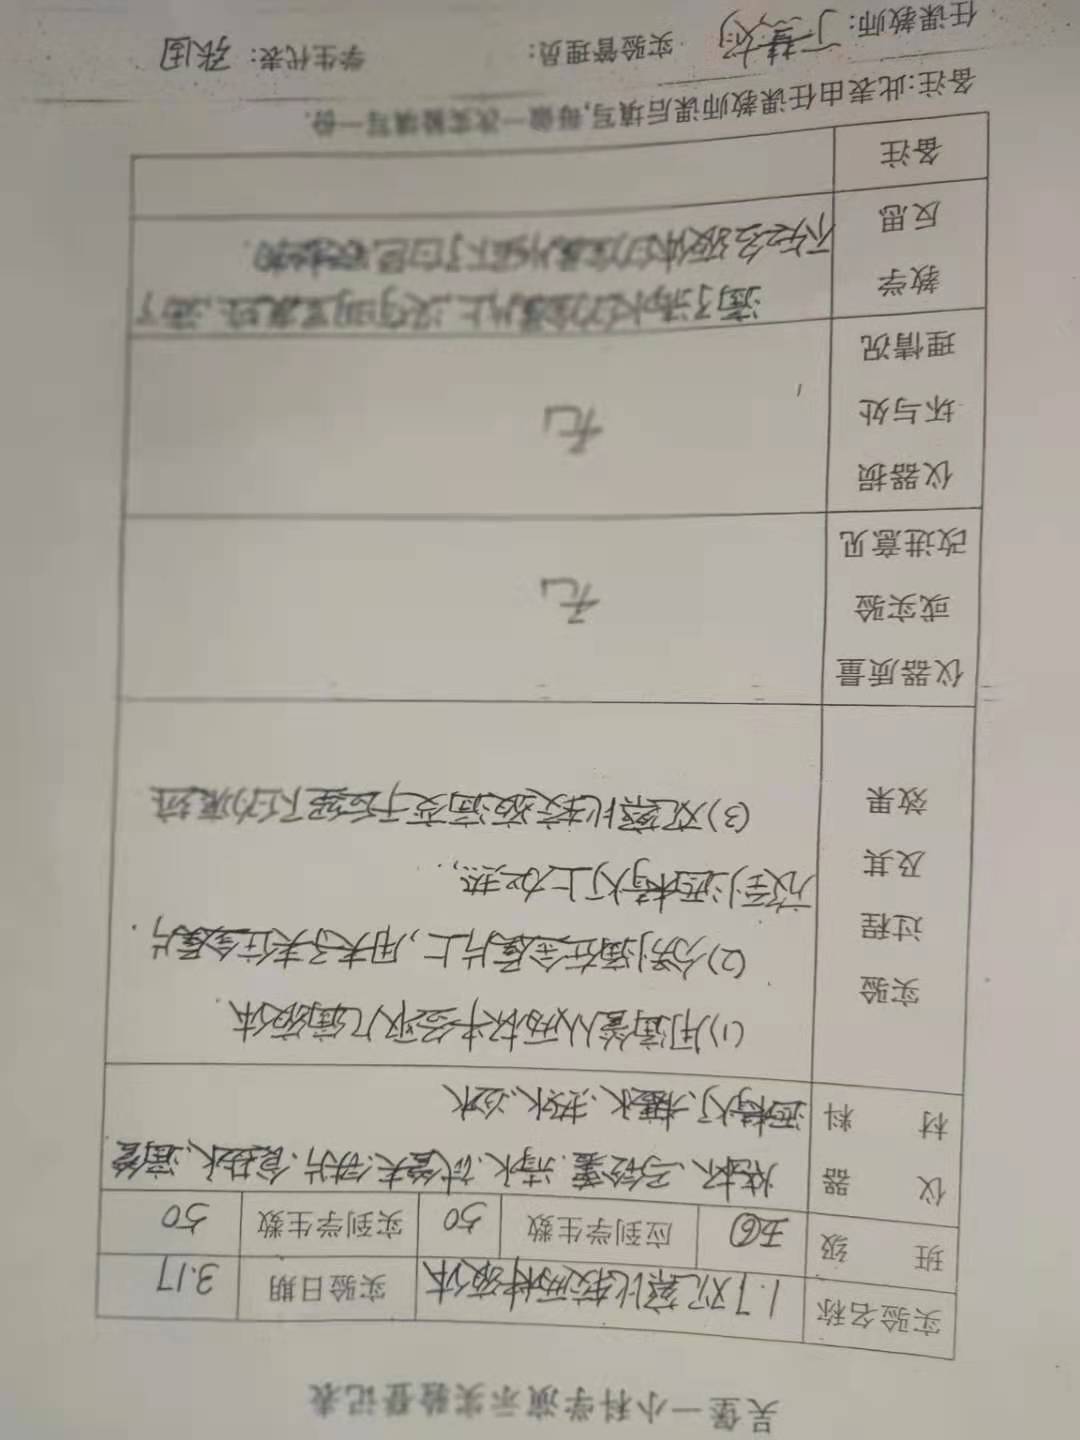 吴堡一小科学演示实验登记表
实验名称 1.7观察比较两种液体 实验日期 3.17
班级 五⑥ 应到学生数 50 实到学生数 50
仪器 烧杯、马铃薯、清水、试管夹、铁片、食盐水、滴管
材料 酒精灯、糖水、热水、冷水
实验过程及其效果
(1)用滴管从两杯中各取几滴液体
(2)分别滴在金属片上,用夹子夹住金属片
放到酒精灯上加热,
(3)观察比较液滴变干后留下的痕迹
仪器质量或实验改进意见 无
仪器损坏与处理情况 无
教学反思
滴了清水的金属片上,没有明显痕迹,滴了
液体的金属片留下了白色
备注
备注:此表由任课教师课后填写,每做一次实验填写一份.
任课教师: 实验管理员: 学生代表: 张国